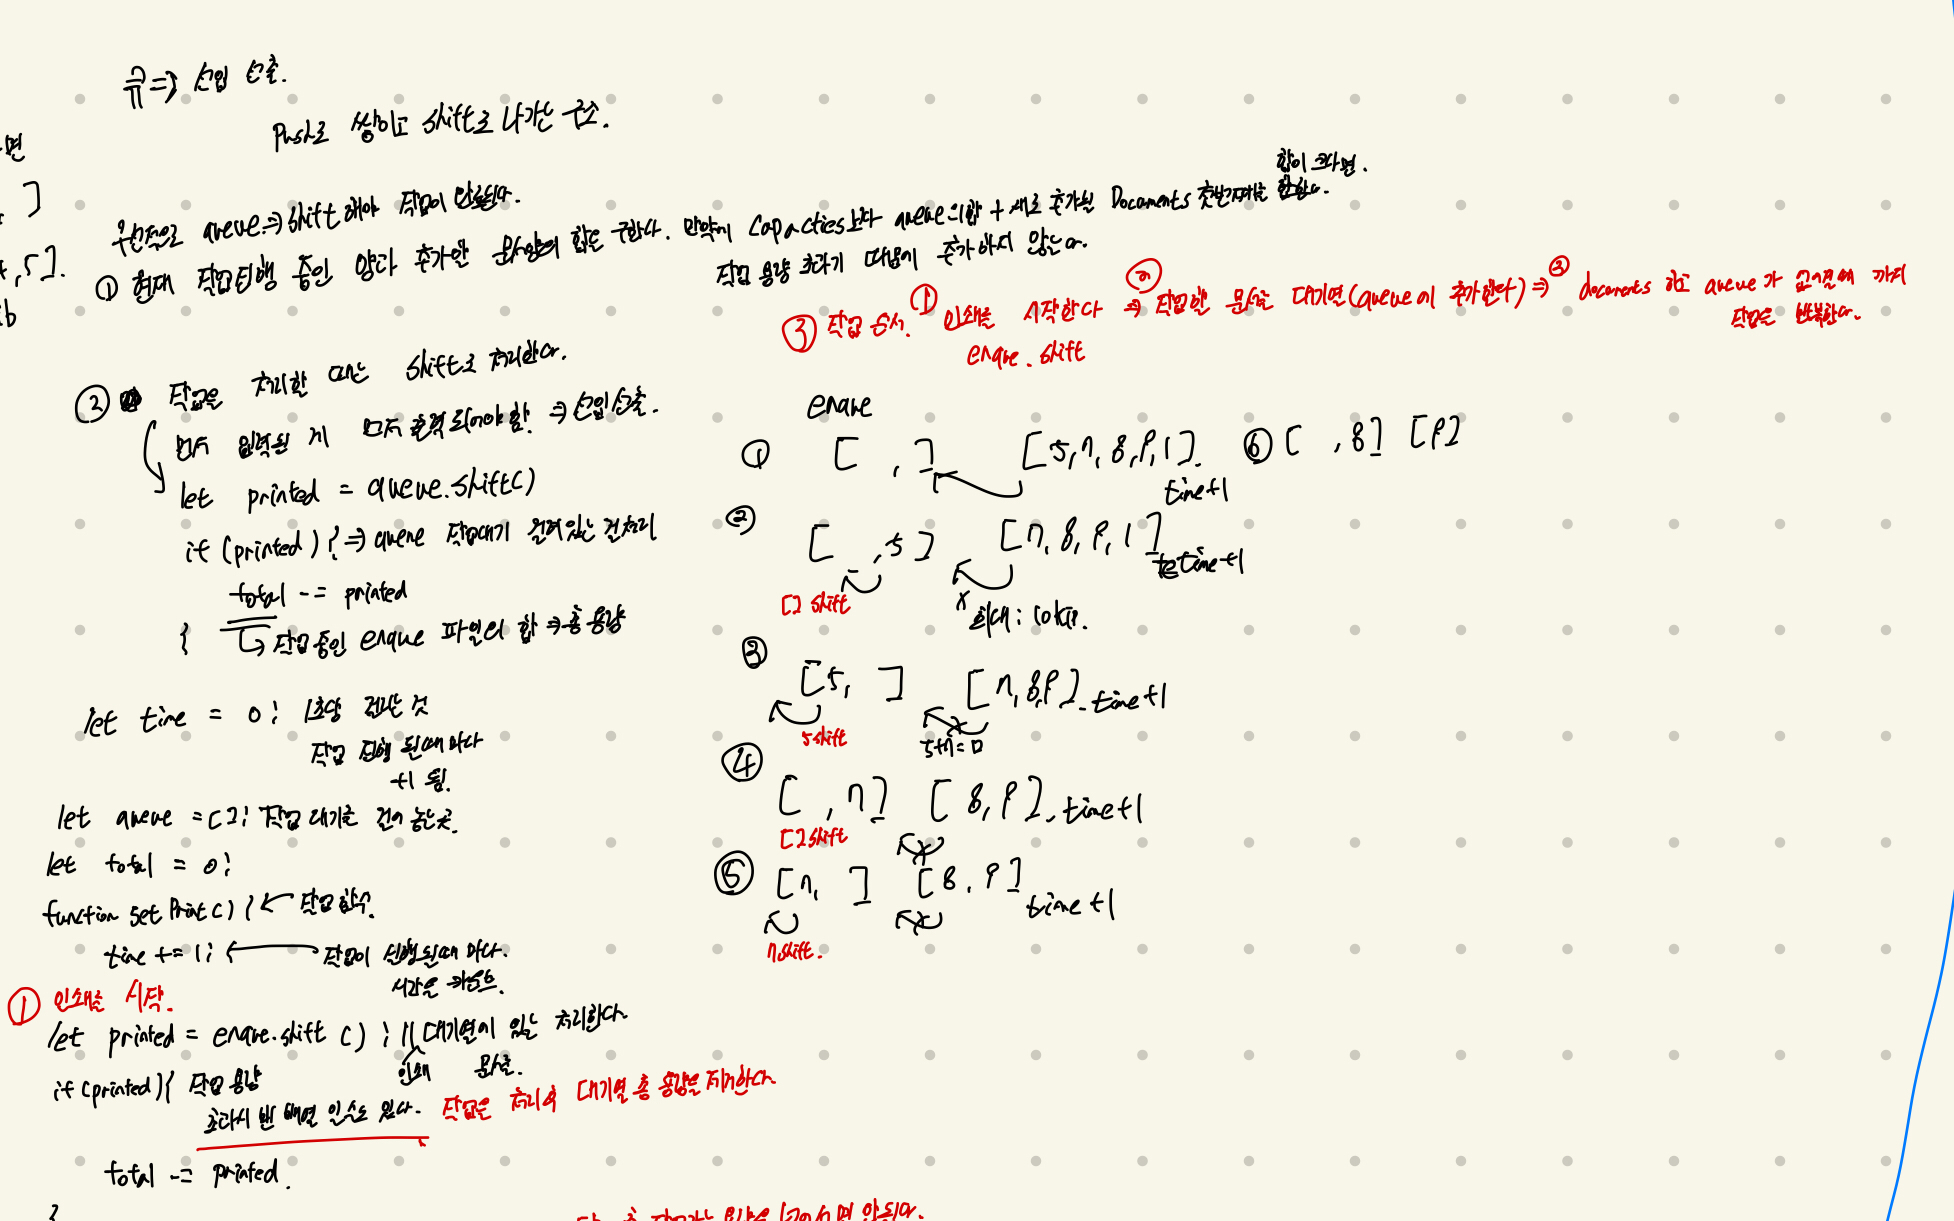 큐 => 선입 선출.
Push로 쌓이고 shift로 나가는 구조.
면
]
,5].
우선적으로 queue => shift 해야 작업이 완료된다.
① 현재 작업진행 중인 양과 추가할 문서양의 합을 구한다. 만약에 Capacties보다 queue의합 + 새로 추가될 Documents 첫번째를 합한
합이 크다면.
작업 용량 초과기 때문에 추가하지 않는다.
③ 작업 순서. ① 인쇄를 시작한다 => ② 작업할 문서를 대기면(queue에 추가한다) => ③ documents 하고 queue가 없어질때 까지
작업은 반복한다.
enque.shift
② 작업을 처리할 때는 shift로 처리한다.
먼저 입력된 게 먼저 출력되어야 함. => 선입선출.
let printed = queue.shift()
if (printed) { => queue 작업대기 걸려있는 건 처리
total -= printed
}
작업중인 enque 파일의 합 => 총 용량
let time = 0; 1초당 걸리는 것
작업 진행 될때 마다
+1 됨.
let queue = []; 작업 대기를 걸어 놓는곳.
let total = 0;
function setPrint() { ← 작업 함수.
time += 1; ← 작업이 실행될때 마다.
시간을 카운트.
① 인쇄를 시작.
let printed = enque.shift (); // 대기열에 있는 처리한다
인쇄 문서를.
if (printed) { 작업 용량
초과시 빈 배열 인수도 있다. 작업은 처리후 대기열 총 용량을 제거한다
total -= printed.
}
enque
① [ , ] [5,7,8,9,1].
time+1
② [ ,5] [7,8,9,1]
time+1
[] shift
x 최대: 10kp.
③ [5, ] [7,8,9]. time+1
5shift
④ [ ,7] [8,9]. time+1
[]shift
⑤ [7, ] [8,9] time+1
7shift.
⑥ [ ,8] [9]